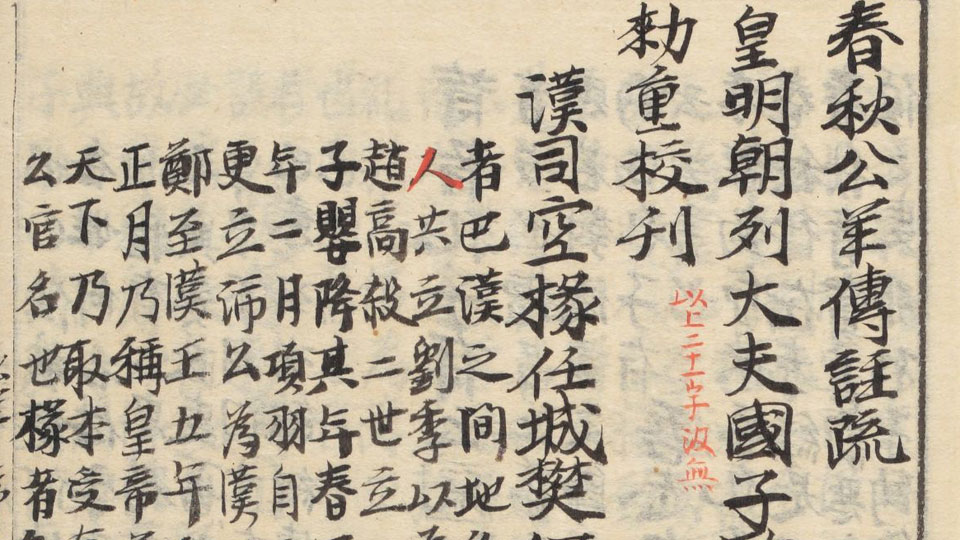 春秋公羊傳註疏
皇明朝列大夫國子
勑重校刊
以上二十一字汲無
漢司空掾任城樊
者巴漢之間地
人共立劉季以
趙高殺二世立
子嬰降其年春
年二月項羽自
更立沛公為漢
鄭至漢王五年
正月乃稱皇帝
天下乃取本受
公官名也掾者